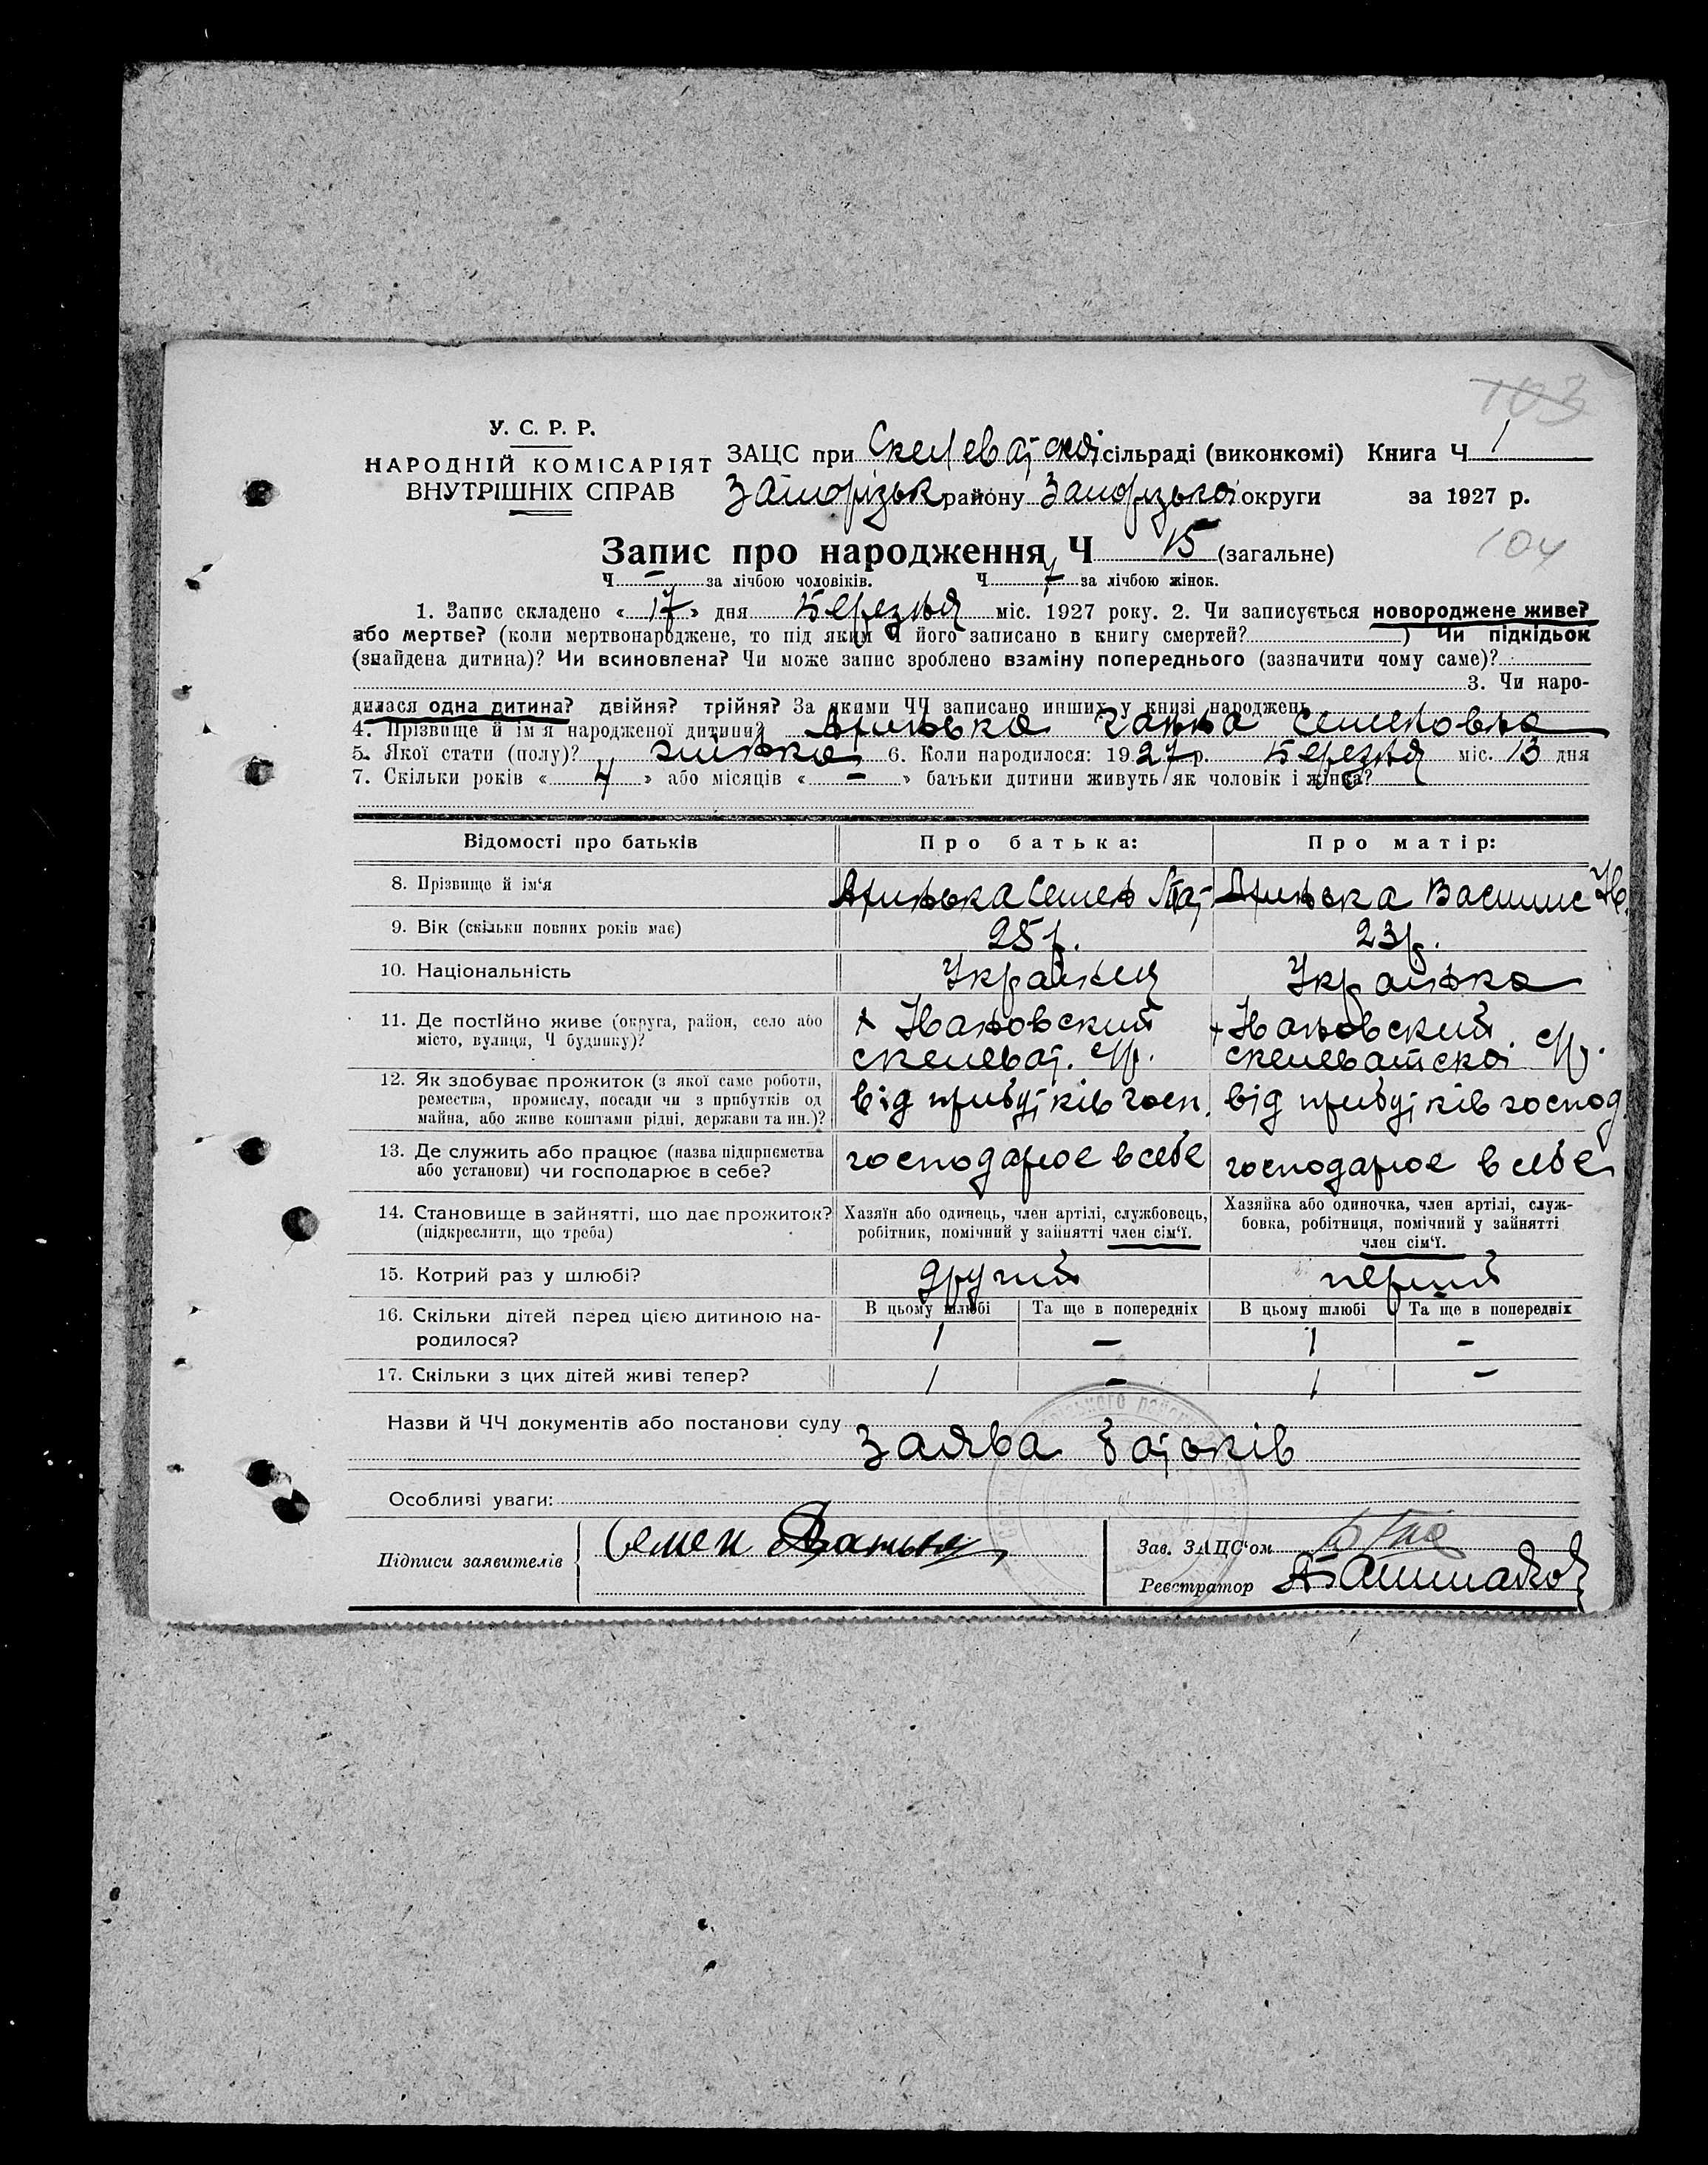 103
У. С. Р. Р.
НАРОДНІЙ КОМІСАРІЯТ
ВНУТРІШНІХ СПРАВ
ЗАЦС при Скелеватській сільраді (виконкомі) Книга Ч 1
Запорізьк району Запорізької округи за 1927 р.
Запис про народження Ч 15 (загальне)
104
Ч — за лічбою чоловіків. Ч 7 за лічбою жінок.
1. Запис складено «17» дня Березня міс. 1927 року. 2. Чи записується новороджене живе?
або мертве? (коли мертвонароджене, то під яким Ч його записано в книгу смертей? ) Чи підкідьок
(знайдена дитина)? Чи всиновлена? Чи може запис зроблено взаміну попереднього (зазначити чому саме)?
3. Чи наро-
дилася одна дитина? двійня? трійня? За якими ЧЧ записано инших у книзі народжень
4. Прізвище й ім'я народженої дитини? Ганна Семеновна
5. Якої стати (полу)? жінка 6. Коли народилося: 1927 р. Березня міс. 13 дня
7. Скільки років «4» або місяців «—» батьки дитини живуть як чоловік і жінка?
Відомості про батьків Про батька: Про матір:
8. Прізвище й ім'я Семен Василис
9. Вік (скільки повних років має) 25 р. 23 р.
10. Національність Українец Українка
11. Де постійно живе (округа, район, село або
місто, вулиця, Ч будинку)? х Нановский Скелеват. с/р. х Нановский Скелеватської с/р.
12. Як здобуває прожиток (з якої саме роботи,
ремества, промислу, посади чи з прибутків од
майна, або живе коштами рідні, держави та ин.)? від прибутків госп. від прибутків господ
13. Де служить або працює (назва підприємства
або установи) чи господарює в себе? господарює в себе господарює в себе
14. Становище в зайнятті, що дає прожиток?
(підкреслити, що треба)
Хазяїн або одинець, член артілі, службовець,
робітник, помічний у зайнятті член сім'ї.
Хазяйка або одиночка, член артілі, служ-
бовка, робітниця, помічний у зайнятті
член сім'ї.
15. Котрий раз у шлюбі? другий перший
В цьому шлюбі Та ще в попередніх В цьому шлюбі Та ще в попередніх
16. Скільки дітей перед цією дитиною на-
родилося? 1 — 1 —
17. Скільки з цих дітей живі тепер? 1 — 1 —
Назви й ЧЧ документів або постанови суду
Заява батьків
Особливі уваги:
Підписи заявителів Семен
Зав. ЗАЦС'ом
Реєстратор